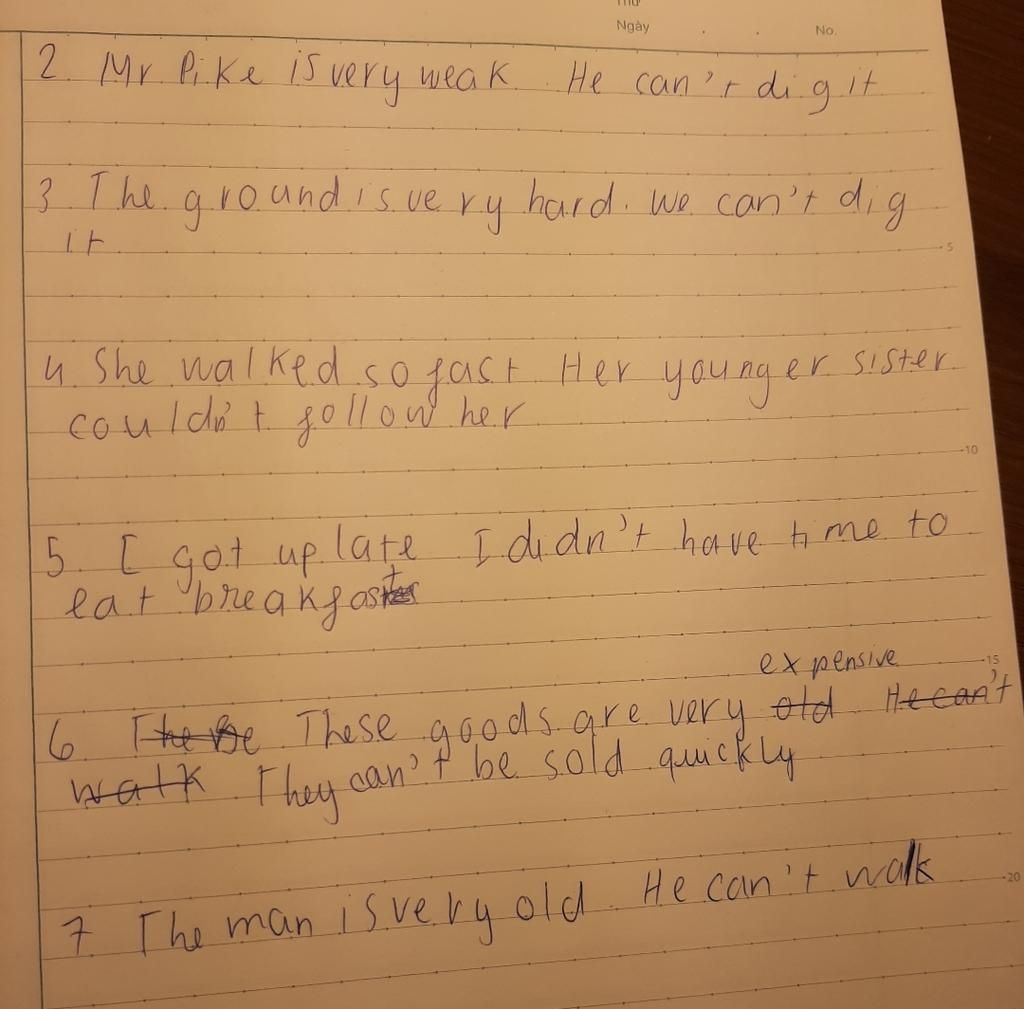 Thứ
Ngày No.
2. Mr Pike is very weak. He can't dig it
3 The ground is very hard. We can't dig
it
5
4. She walked so fast. Her younger sister
couldn't follow her
10
5. I got up late I didn't have time to
eat breakfast
expensive 15
6 The These goods are very old He can't
walk They can't be sold quickly
7 The man is very old. He can't walk
20